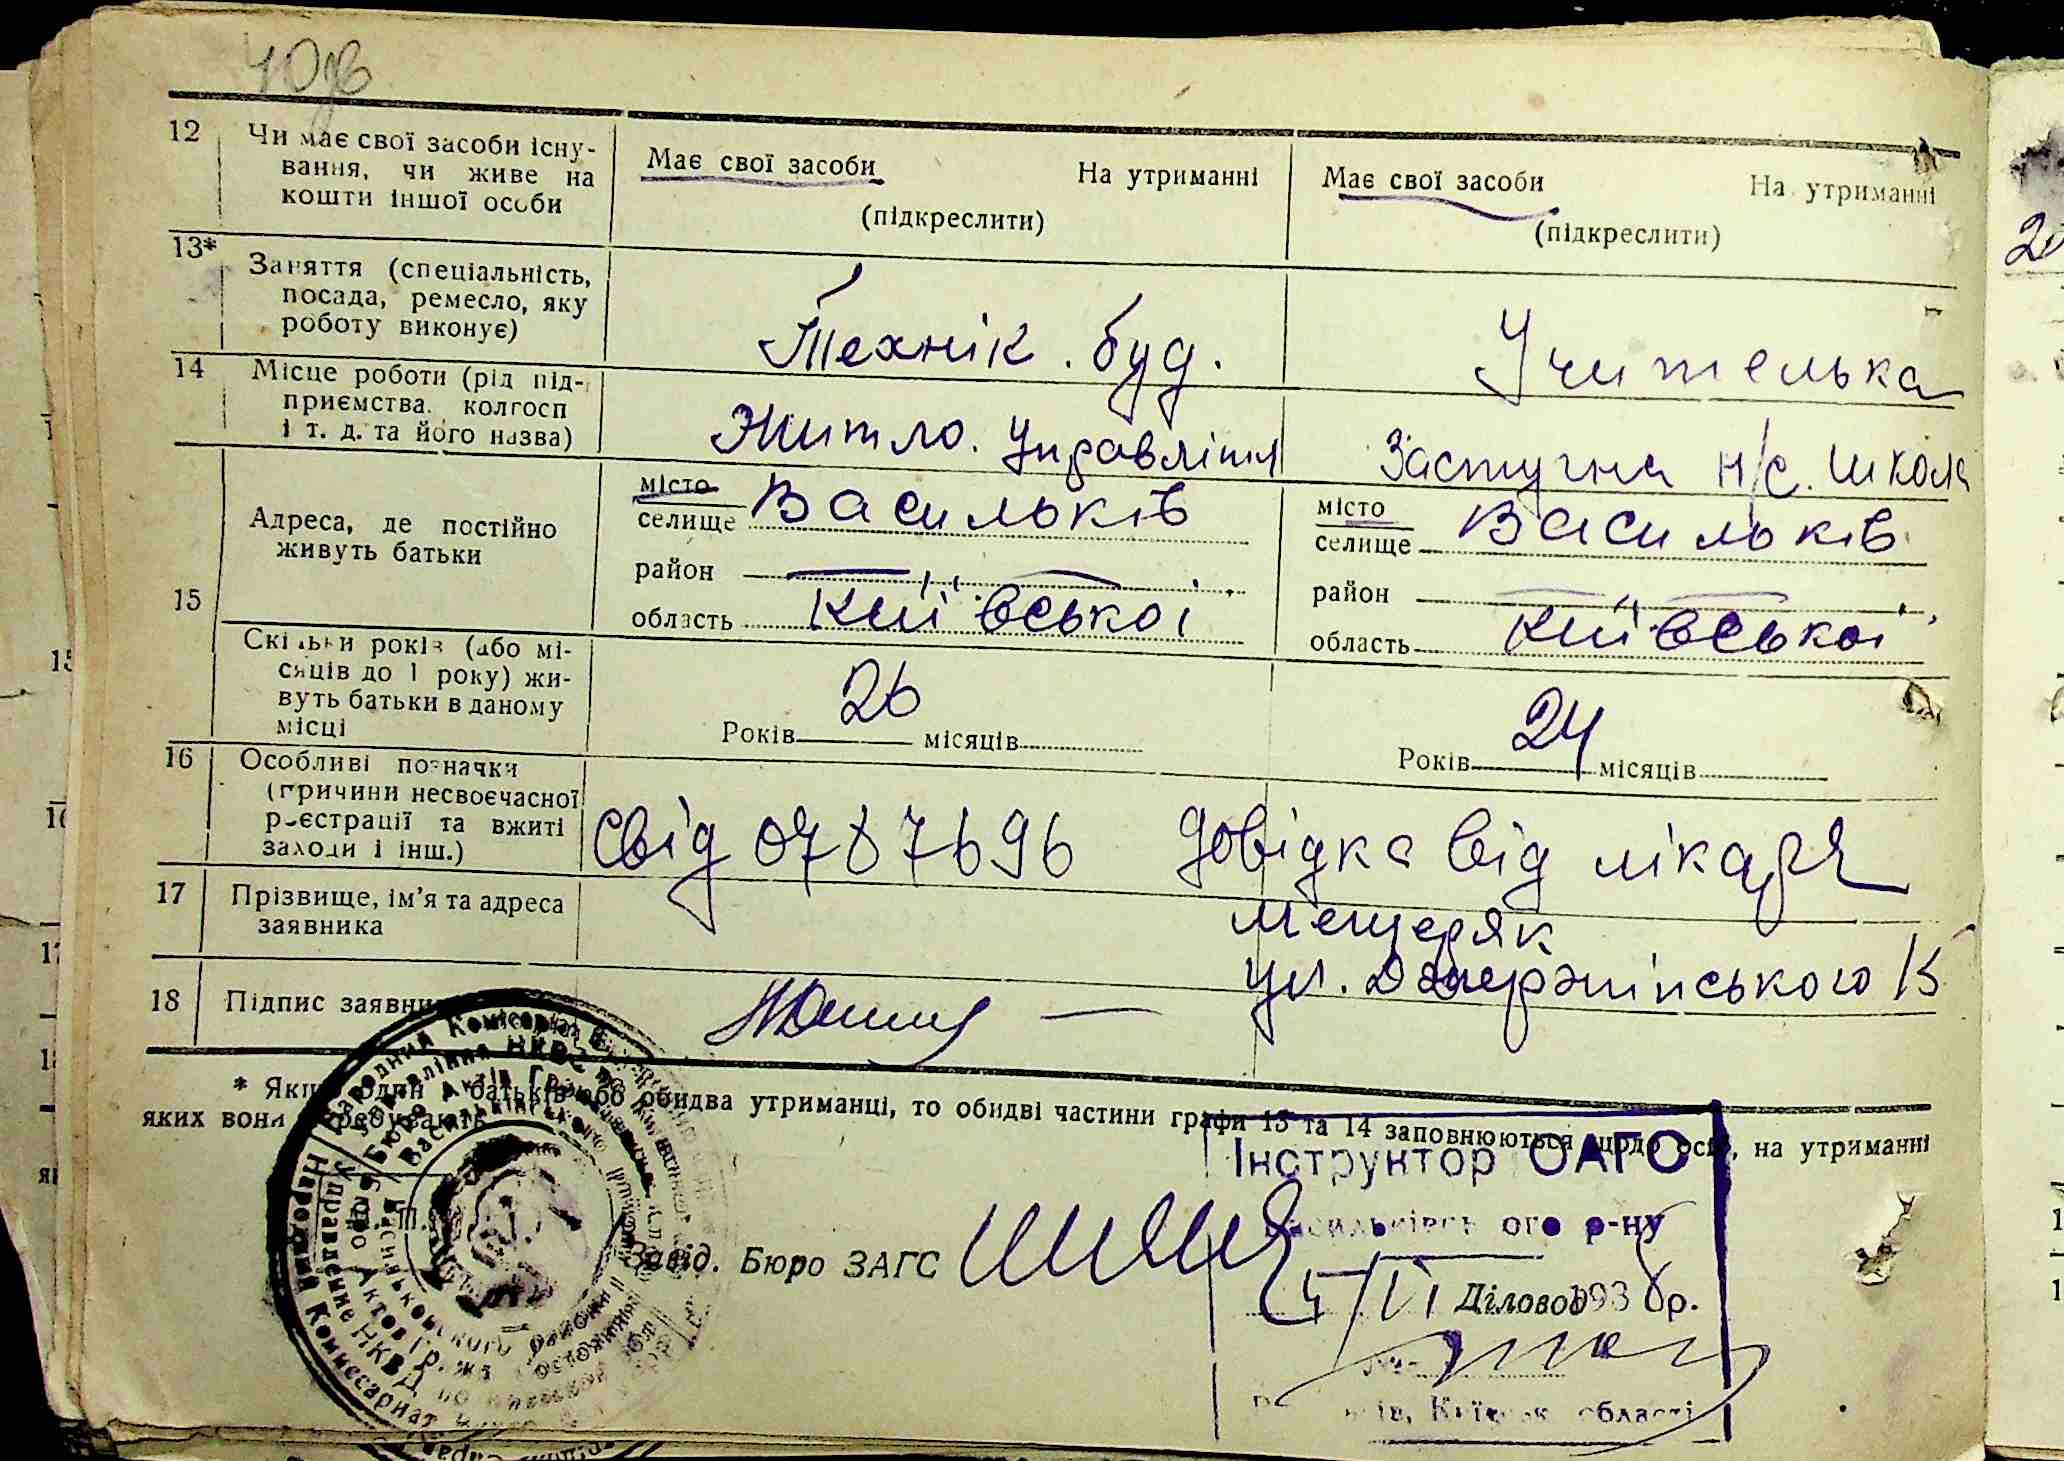 12 Чи має свої засоби існу-
вання, чи живе на
кошти іншої особи
Має свої засоби На утриманні
(підкреслити)
Має свої засоби На утриманні
(підкреслити)
13* Заняття (спеціальність,
посада, ремесло, яку
роботу виконує)
Технік. буд.
Учителька
14 Місце роботи (рід під-
приємства, колгосп
і т. д. та його назва)
Житло. Управління
Застугна н/с. школа
15 Адреса, де постійно
живуть батьки
місто
селище Васильків
район
область Київської
місто
селище Васильків
район
область Київської
Скільки років (або мі-
сяців до 1 року) жи-
вуть батьки в даному
місці
Років 26 місяців
Років 24 місяців
16 Особливі позначки
(причини несвоєчасної
реєстрації та вжиті
заходи і інш.)
Свід 0787696 Довідка від лікаря
17 Прізвище, ім'я та адреса
заявника
Мещеряк
ул. Дзержинського 15
18 Підпис заявни
* Якщо один з батьків або обидва утриманці, то обидві частини графи 13 та 14 заповнюються щодо осіб, на утриманні
яких вони перебувають
Інструктор ОАГС
Васильківського р-ну
Завід. Бюро ЗАГС
Діловод 193 р.
Київськ області